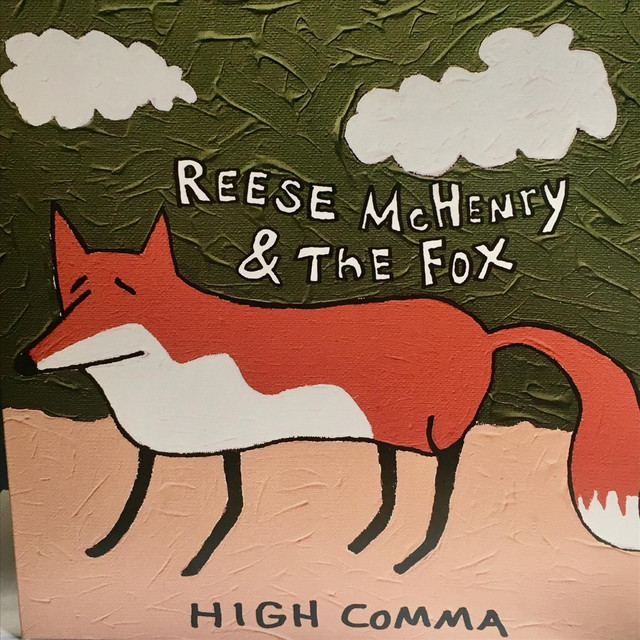 REESE McHENRY
& The FOX
HIGH COMMA